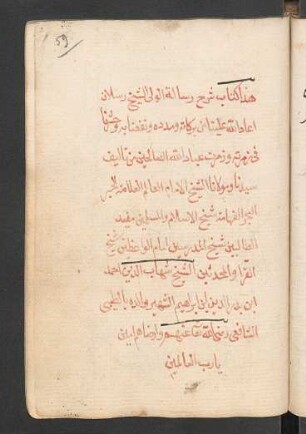 59
هذا كتاب شرح رسالة الولي الشيخ رسلان
اعاد الله علينا من بركاته ومدده ونفعنا به وحشرنا
في زمرته وزمرة عباد الله الصالحين من تأليف
سيدنا ومولانا الشيخ الامام العالم العلامة الحبر
البحر الفهامة شيخ الاسلام والمسلمين مفيد
الطالبين شيخ المدرسين امام الواعظين شيخ
القراء والمحدثين الشيخ شهاب الدين احمد
ابن بدر الدين ابن ابراهيم الشهير والده بالطيبي
الشافعي رضي الله تعالى عنهم وارضاهم امين
يارب العالمين